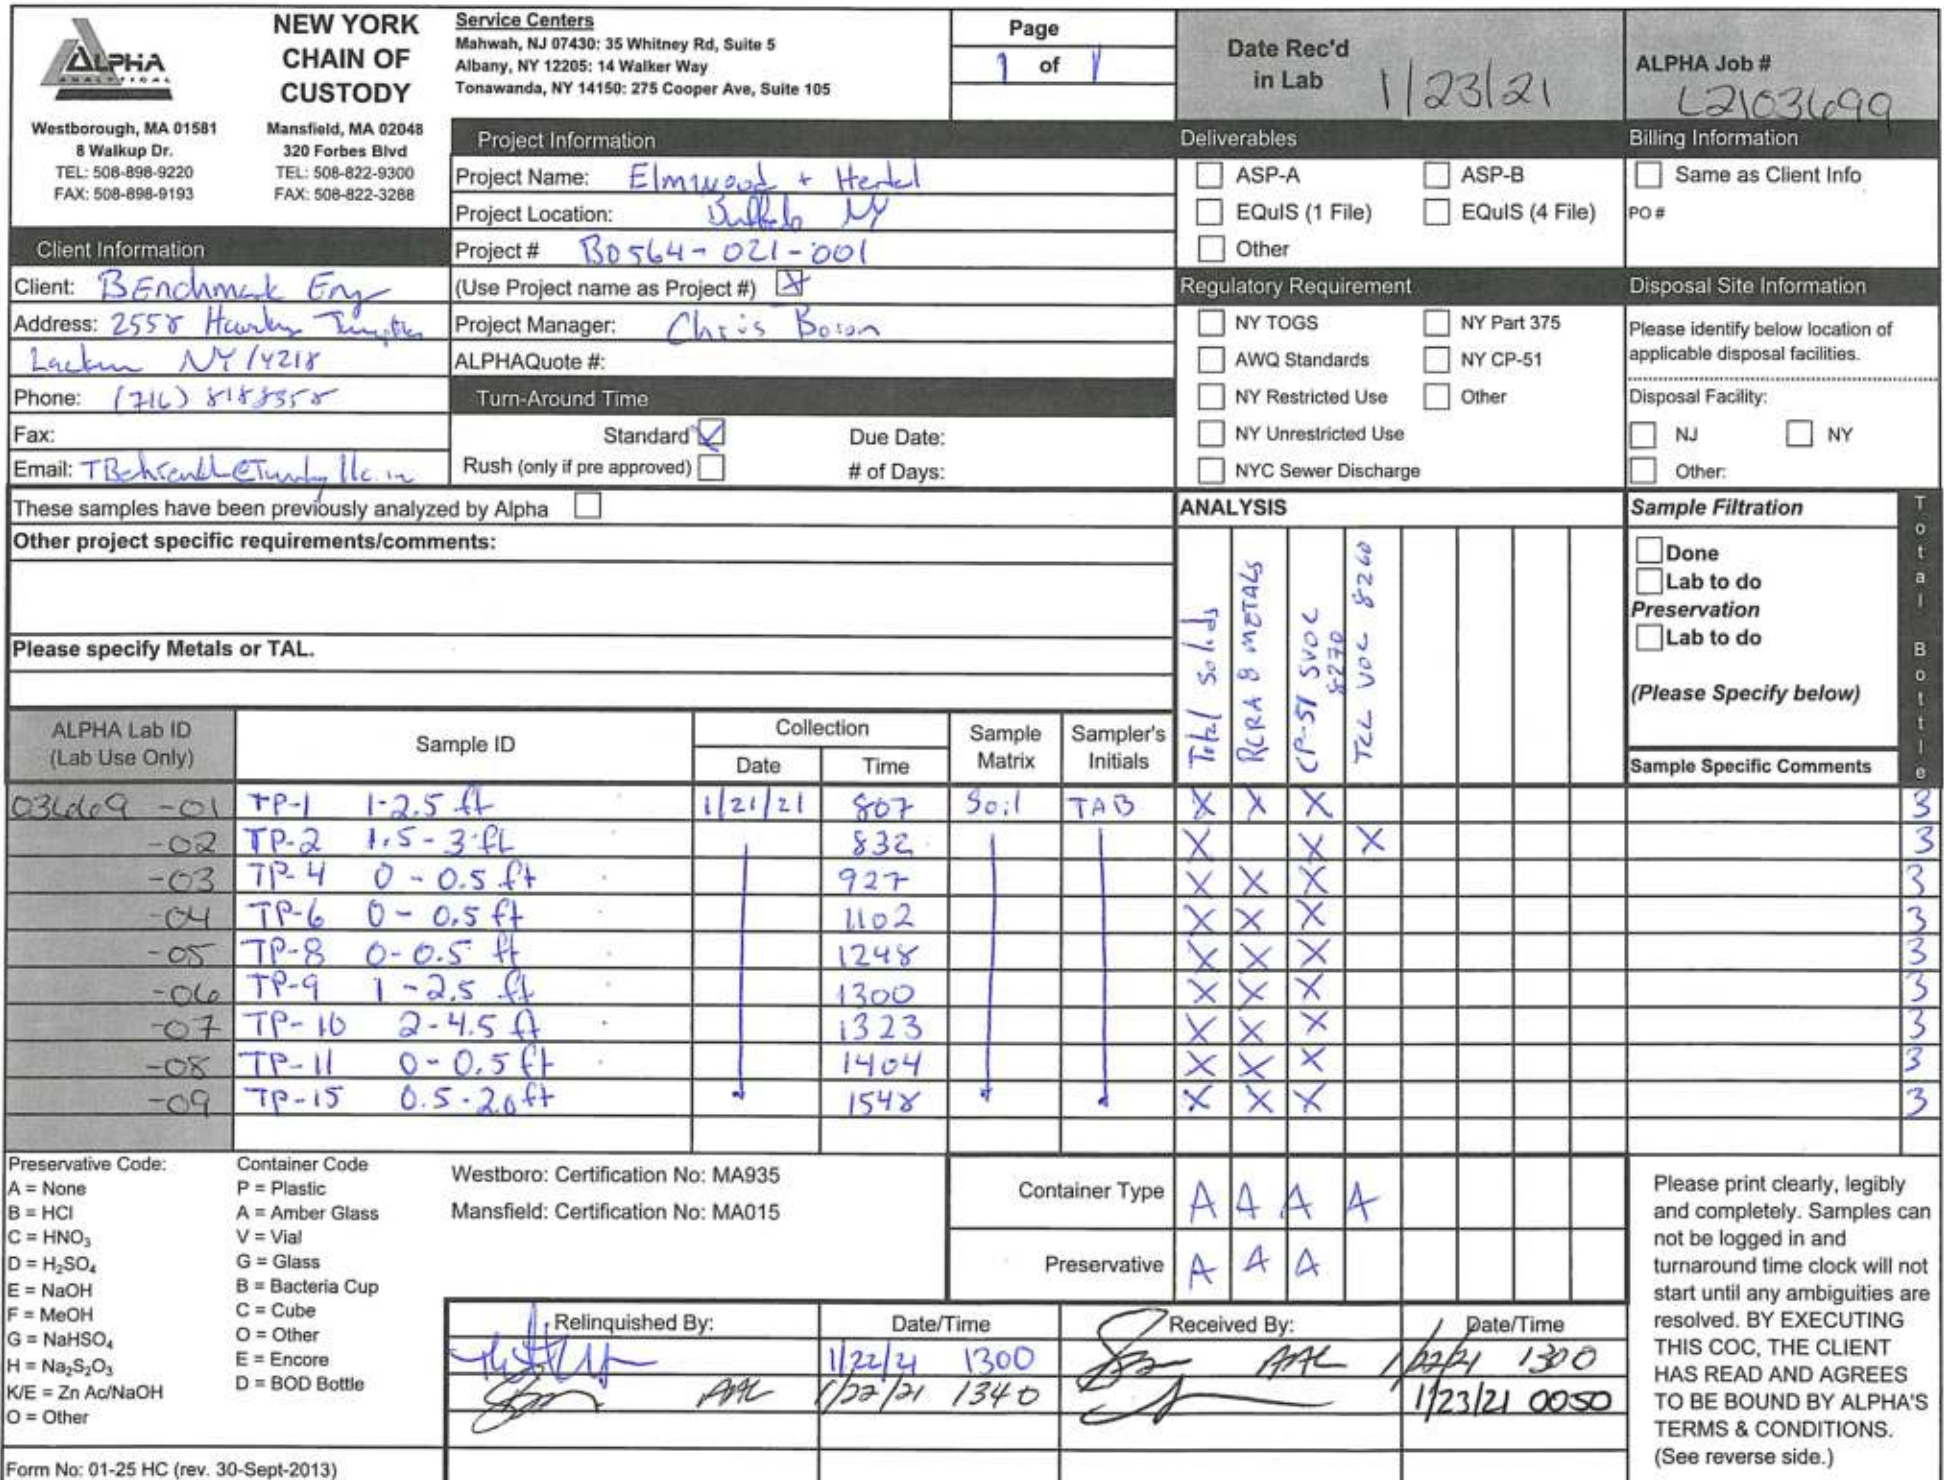 ALPHA
ANALYTICAL
NEW YORK
CHAIN OF
CUSTODY
Westborough, MA 01581
8 Walkup Dr.
TEL: 508-898-9220
FAX: 508-898-9193
Mansfield, MA 02048
320 Forbes Blvd
TEL: 508-822-9300
FAX: 508-822-3288
Service Centers
Mahwah, NJ 07430: 35 Whitney Rd, Suite 5
Albany, NY 12205: 14 Walker Way
Tonawanda, NY 14150: 275 Cooper Ave, Suite 105
Page
1 of 1
Date Rec'd
in Lab 1/23/21
ALPHA Job #
L2103699
Client Information
Client: BEnchmark Eng
Address: 2558 Hamburg Turnpike
NY 14218
Phone: (716) 8188358
Fax:
Email:
Project Information
Project Name: Elmwood + Hertel
Project Location: Buffalo NY
Project # B0564-021-001
(Use Project name as Project #) X
Project Manager: Chris Boron
ALPHAQuote #:
Turn-Around Time
Standard Due Date:
Rush (only if pre approved) # of Days:
Deliverables
ASP-A ASP-B
EQuIS (1 File) EQuIS (4 File)
Other
Regulatory Requirement
NY TOGS NY Part 375
AWQ Standards NY CP-51
NY Restricted Use Other
NY Unrestricted Use
NYC Sewer Discharge
Billing Information
Same as Client Info
PO #
Disposal Site Information
Please identify below location of
applicable disposal facilities.
Disposal Facility:
NJ NY
Other:
These samples have been previously analyzed by Alpha
Other project specific requirements/comments:
Please specify Metals or TAL.
ANALYSIS
Total Solids
RCRA 8 METALS
CP-51 SVOC
8270
TCL VOC 8260
Sample Filtration
Done
Lab to do
Preservation
Lab to do
(Please Specify below)
Sample Specific Comments
Total Bottle
ALPHA Lab ID
(Lab Use Only)
Sample ID
Collection
Date Time
Sample
Matrix
Sampler's
Initials
-01 TP-1 1-2.5 ft 1/21/21 807 Soil TAB X X X 3
-02 TP-2 1.5-3 ft 832 X X X 3
-03 TP-4 0-0.5 ft 927 X X X 3
-04 TP-6 0-0.5 ft 1102 X X X 3
-05 TP-8 0-0.5 ft 1248 X X X 3
-06 TP-9 1-2.5 ft 1300 X X X 3
-07 TP-10 2-4.5 ft 1323 X X X 3
-08 TP-11 0-0.5 ft 1404 X X X 3
-09 TP-15 0.5-2.0 ft 1548 X X X 3
Preservative Code:
A = None
B = HCl
C = HNO₃
D = H₂SO₄
E = NaOH
F = MeOH
G = NaHSO₄
H = Na₂S₂O₃
K/E = Zn Ac/NaOH
O = Other
Container Code
P = Plastic
A = Amber Glass
V = Vial
G = Glass
B = Bacteria Cup
C = Cube
O = Other
E = Encore
D = BOD Bottle
Westboro: Certification No: MA935
Mansfield: Certification No: MA015
Container Type A A A A
Preservative A A A
Relinquished By: Date/Time Received By: Date/Time
1/22/21 1300 AAL 1/22/21 1300
AAL 1/22/21 1340 1/23/21 0050
Please print clearly, legibly
and completely. Samples can
not be logged in and
turnaround time clock will not
start until any ambiguities are
resolved. BY EXECUTING
THIS COC, THE CLIENT
HAS READ AND AGREES
TO BE BOUND BY ALPHA'S
TERMS & CONDITIONS.
(See reverse side.)
Form No: 01-25 HC (rev. 30-Sept-2013)